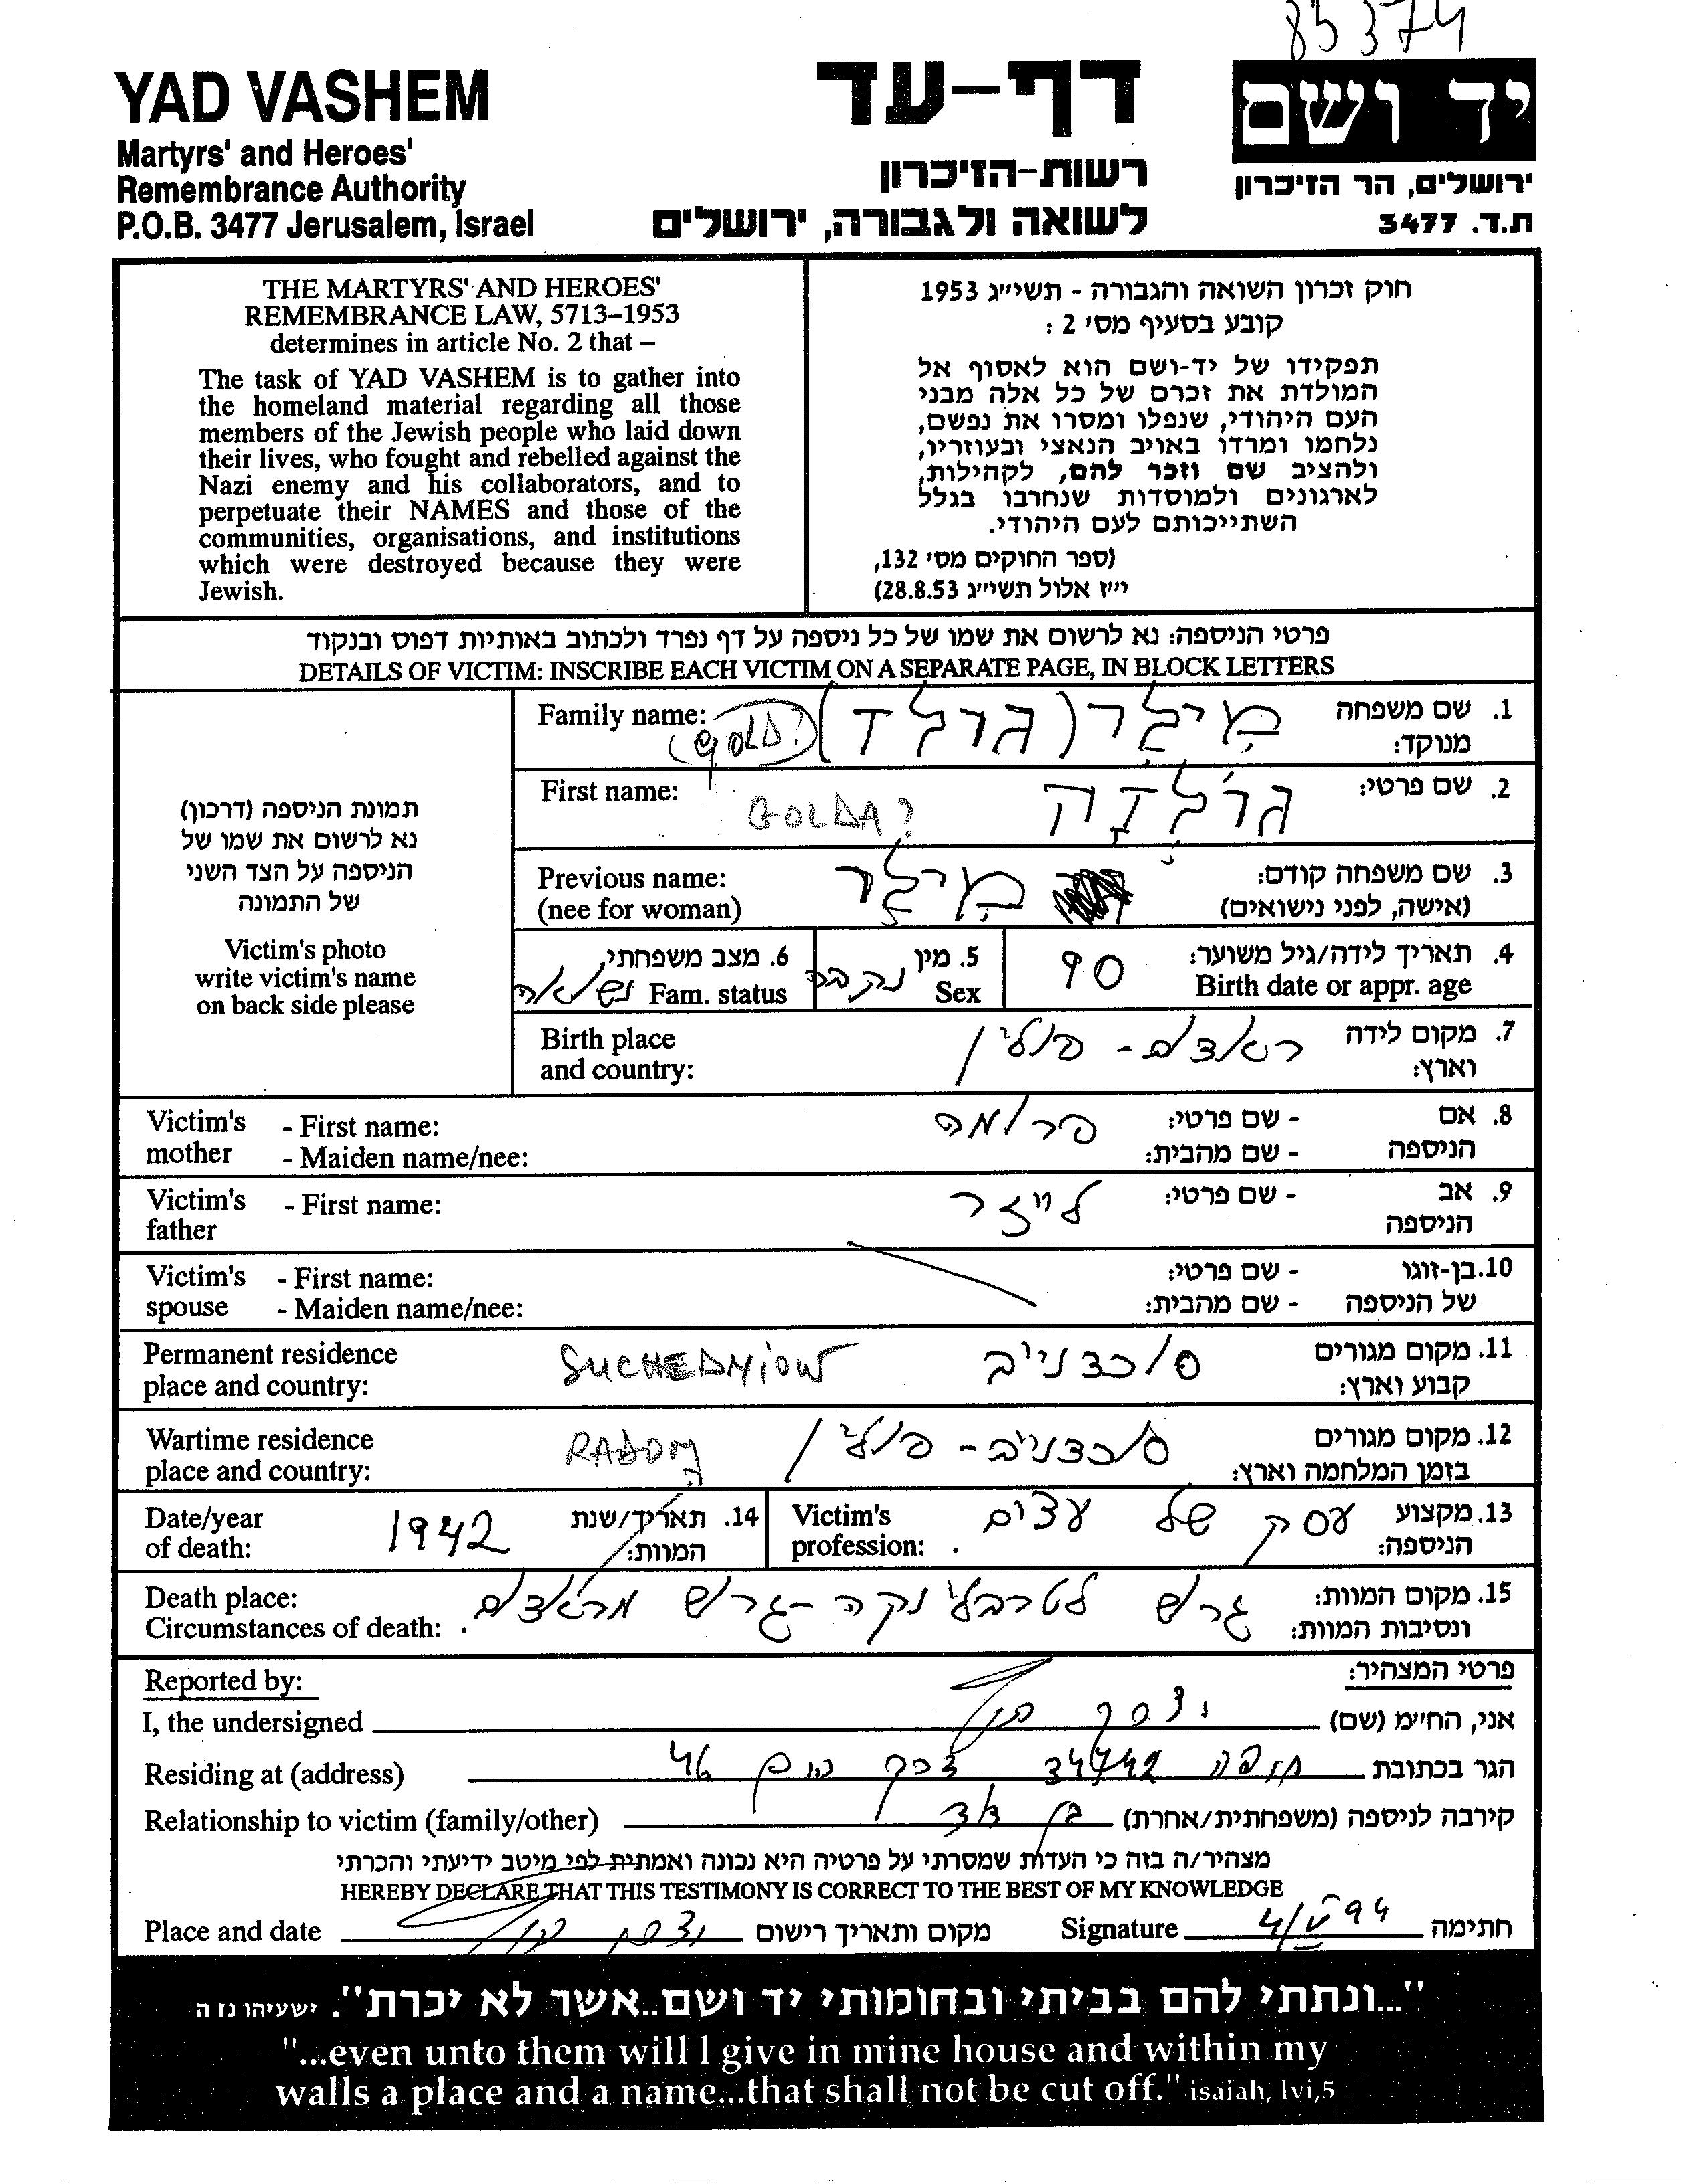 85374
YAD VASHEM
Martyrs' and Heroes'
Remembrance Authority
P.O.B. 3477 Jerusalem, Israel
דף-עד
רשות-הזיכרון
לשואה ולגבורה, ירושלים
יד ושם
ירושלים, הר הזיכרון
ת.ד. 3477
THE MARTYRS' AND HEROES'
REMEMBRANCE LAW, 5713–1953
determines in article No. 2 that –
The task of YAD VASHEM is to gather into
the homeland material regarding all those
members of the Jewish people who laid down
their lives, who fought and rebelled against the
Nazi enemy and his collaborators, and to
perpetuate their NAMES and those of the
communities, organisations, and institutions
which were destroyed because they were
Jewish.
חוק זכרון השואה והגבורה - תשי״ג 1953
קובע בסעיף מס׳ 2 :
תפקידו של יד-ושם הוא לאסוף אל
המולדת את זכרם של כל אלה מבני
העם היהודי, שנפלו ומסרו את נפשם,
נלחמו ומרדו באויב הנאצי ובעוזריו,
ולהציב שם וזכר להם, לקהילות,
לארגונים ולמוסדות שנחרבו בגלל
השתייכותם לעם היהודי.
(ספר החוקים מס׳ 132,
י״ז אלול תשי״ג 28.8.53)
פרטי הניספה: נא לרשום את שמו של כל ניספה על דף נפרד ולכתוב באותיות דפוס ובנקוד
DETAILS OF VICTIM: INSCRIBE EACH VICTIM ON A SEPARATE PAGE, IN BLOCK LETTERS
תמונת הניספה (דרכון)
נא לרשום את שמו של
הניספה על הצד השני
של התמונה
Victim's photo
write victim's name
on back side please
1. שם משפחה מילר (גולד) (GOLD?) Family name:
מנוקד:
2. שם פרטי: גולדה GOLDA? First name:
3. שם משפחה קודם: מילר Previous name:
(אישה, לפני נישואים) (nee for woman)
4. תאריך לידה/גיל משוער: 90 5. מין נקבה 6. מצב משפחתי, נשואה
Birth date or appr. age Sex Fam. status
7. מקום לידה ראדום - פולין Birth place
וארץ: and country:
8. אם - שם פרטי: פרומה Victim's - First name:
הניספה - שם מהבית: mother - Maiden name/nee:
9. אב - שם פרטי: לייזר Victim's - First name:
הניספה father
10. בן-זוגו - שם פרטי: Victim's - First name:
של הניספה - שם מהבית: spouse - Maiden name/nee:
11. מקום מגורים סוכדנייב SUCHEDNIOW Permanent residence
קבוע וארץ: place and country:
12. מקום מגורים סוכדנייב - פולין RADOM Wartime residence
בזמן המלחמה וארץ: place and country:
13. מקצוע עסק של עצים Victim's 14. תאריך/שנת 1942 Date/year
הניספה: profession: המוות: of death:
15. מקום המוות: גורש לטרבלינקה - גורש מראדום Death place:
ונסיבות המוות: Circumstances of death:
פרטי המצהיר: Reported by:
אני, החי״מ (שם) I, the undersigned
הגר בכתובת חיפה 34742 דרך הים 46 Residing at (address)
קירבה לניספה (משפחתית/אחרת) בן דוד Relationship to victim (family/other)
מצהיר/ה בזה כי העדות שמסרתי על פרטיה היא נכונה ואמתית לפי מיטב ידיעתי והכרתי
HEREBY DECLARE THAT THIS TESTIMONY IS CORRECT TO THE BEST OF MY KNOWLEDGE
חתימה 4/V 94 Signature מקום ותאריך רישום Place and date
"...ונתתי להם בביתי ובחומותי יד ושם..אשר לא יכרת". ישעיהו נז ה
"...even unto them will I give in mine house and within my
walls a place and a name...that shall not be cut off." isaiah, lvi,5